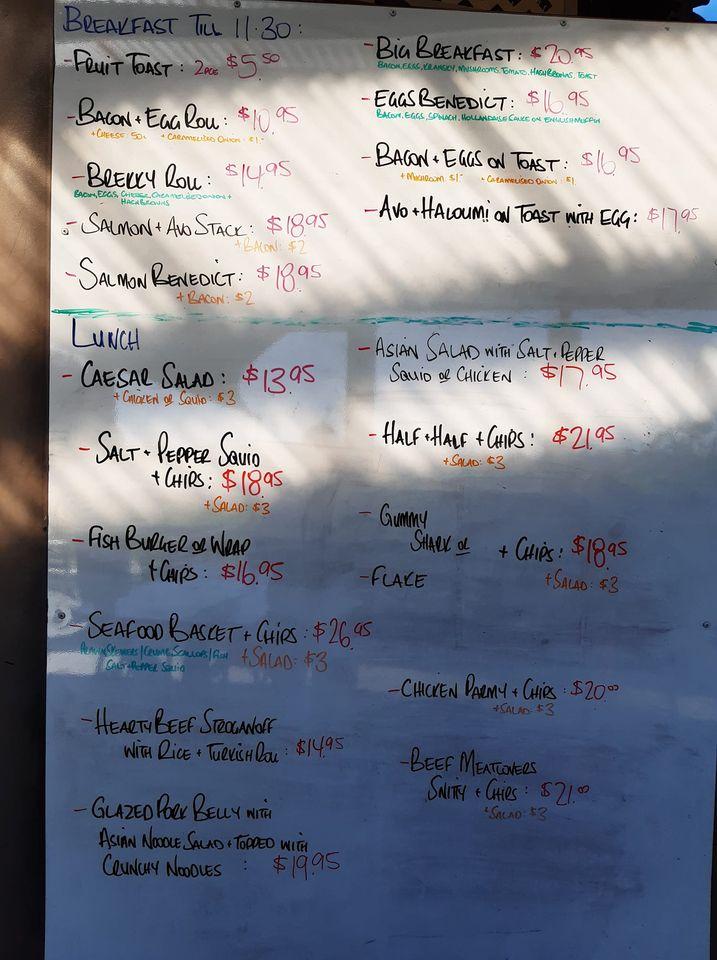 BREAKFAST TILL 11:30:
- FRUIT TOAST: 2PCE $5.50
- BACON + EGG ROLL: $10.95
+ CHEESE: 50c + CARAMELISED ONION: $1-
- BREKKY ROLL: $14.95
BACON, EGGS, CHEESE, CARAMELISED ONION +
HASH BROWNS
- SALMON + AVO STACK: $18.95
+ BACON: $2
- SALMON BENEDICT: $18.95
+ BACON: $2
- BIG BREAKFAST: $20.95
BACON, EGGS, KRANSKY, MUSHROOMS, TOMATO, HASH BROWNS, TOAST
- EGGS BENEDICT: $16.95
BACON, EGGS, SPINACH, HOLLANDAISE SAUCE ON ENGLISH MUFFIN
- BACON + EGGS ON TOAST: $16.95
+ MUSHROOM: $1- + CARAMELISED ONION: $1
- AVO + HALOUMI ON TOAST WITH EGG: $17.95
LUNCH
- CAESAR SALAD: $13.95
+ CHICKEN OR SQUID: $3
- SALT + PEPPER SQUID
+ CHIPS: $18.95
+ SALAD: $3
- FISH BURGER OR WRAP
+ CHIPS: $16.95
- SEAFOOD BASKET + CHIPS: $26.95
PRAWN SKEWERS / CRUMB SCALLOPS / FISH + SALAD: $3
SALT + PEPPER SQUID
- HEARTY BEEF STROGANOFF
WITH RICE + TURKISH ROLL: $14.95
- GLAZED PORK BELLY WITH
ASIAN NOODLE SALAD + TOPPED WITH
CRUNCHY NOODLES: $19.95
- ASIAN SALAD WITH SALT + PEPPER
SQUID OR CHICKEN: $17.95
- HALF + HALF + CHIPS: $21.95
+ SALAD: $3
- GUMMY
SHARK OR + CHIPS: $18.95
- FLAKE + SALAD: $3
- CHICKEN PARMY + CHIPS: $20.00
+ SALAD: $3
- BEEF MEATLOVERS
SNITTY + CHIPS: $21.00
+ SALAD: $3